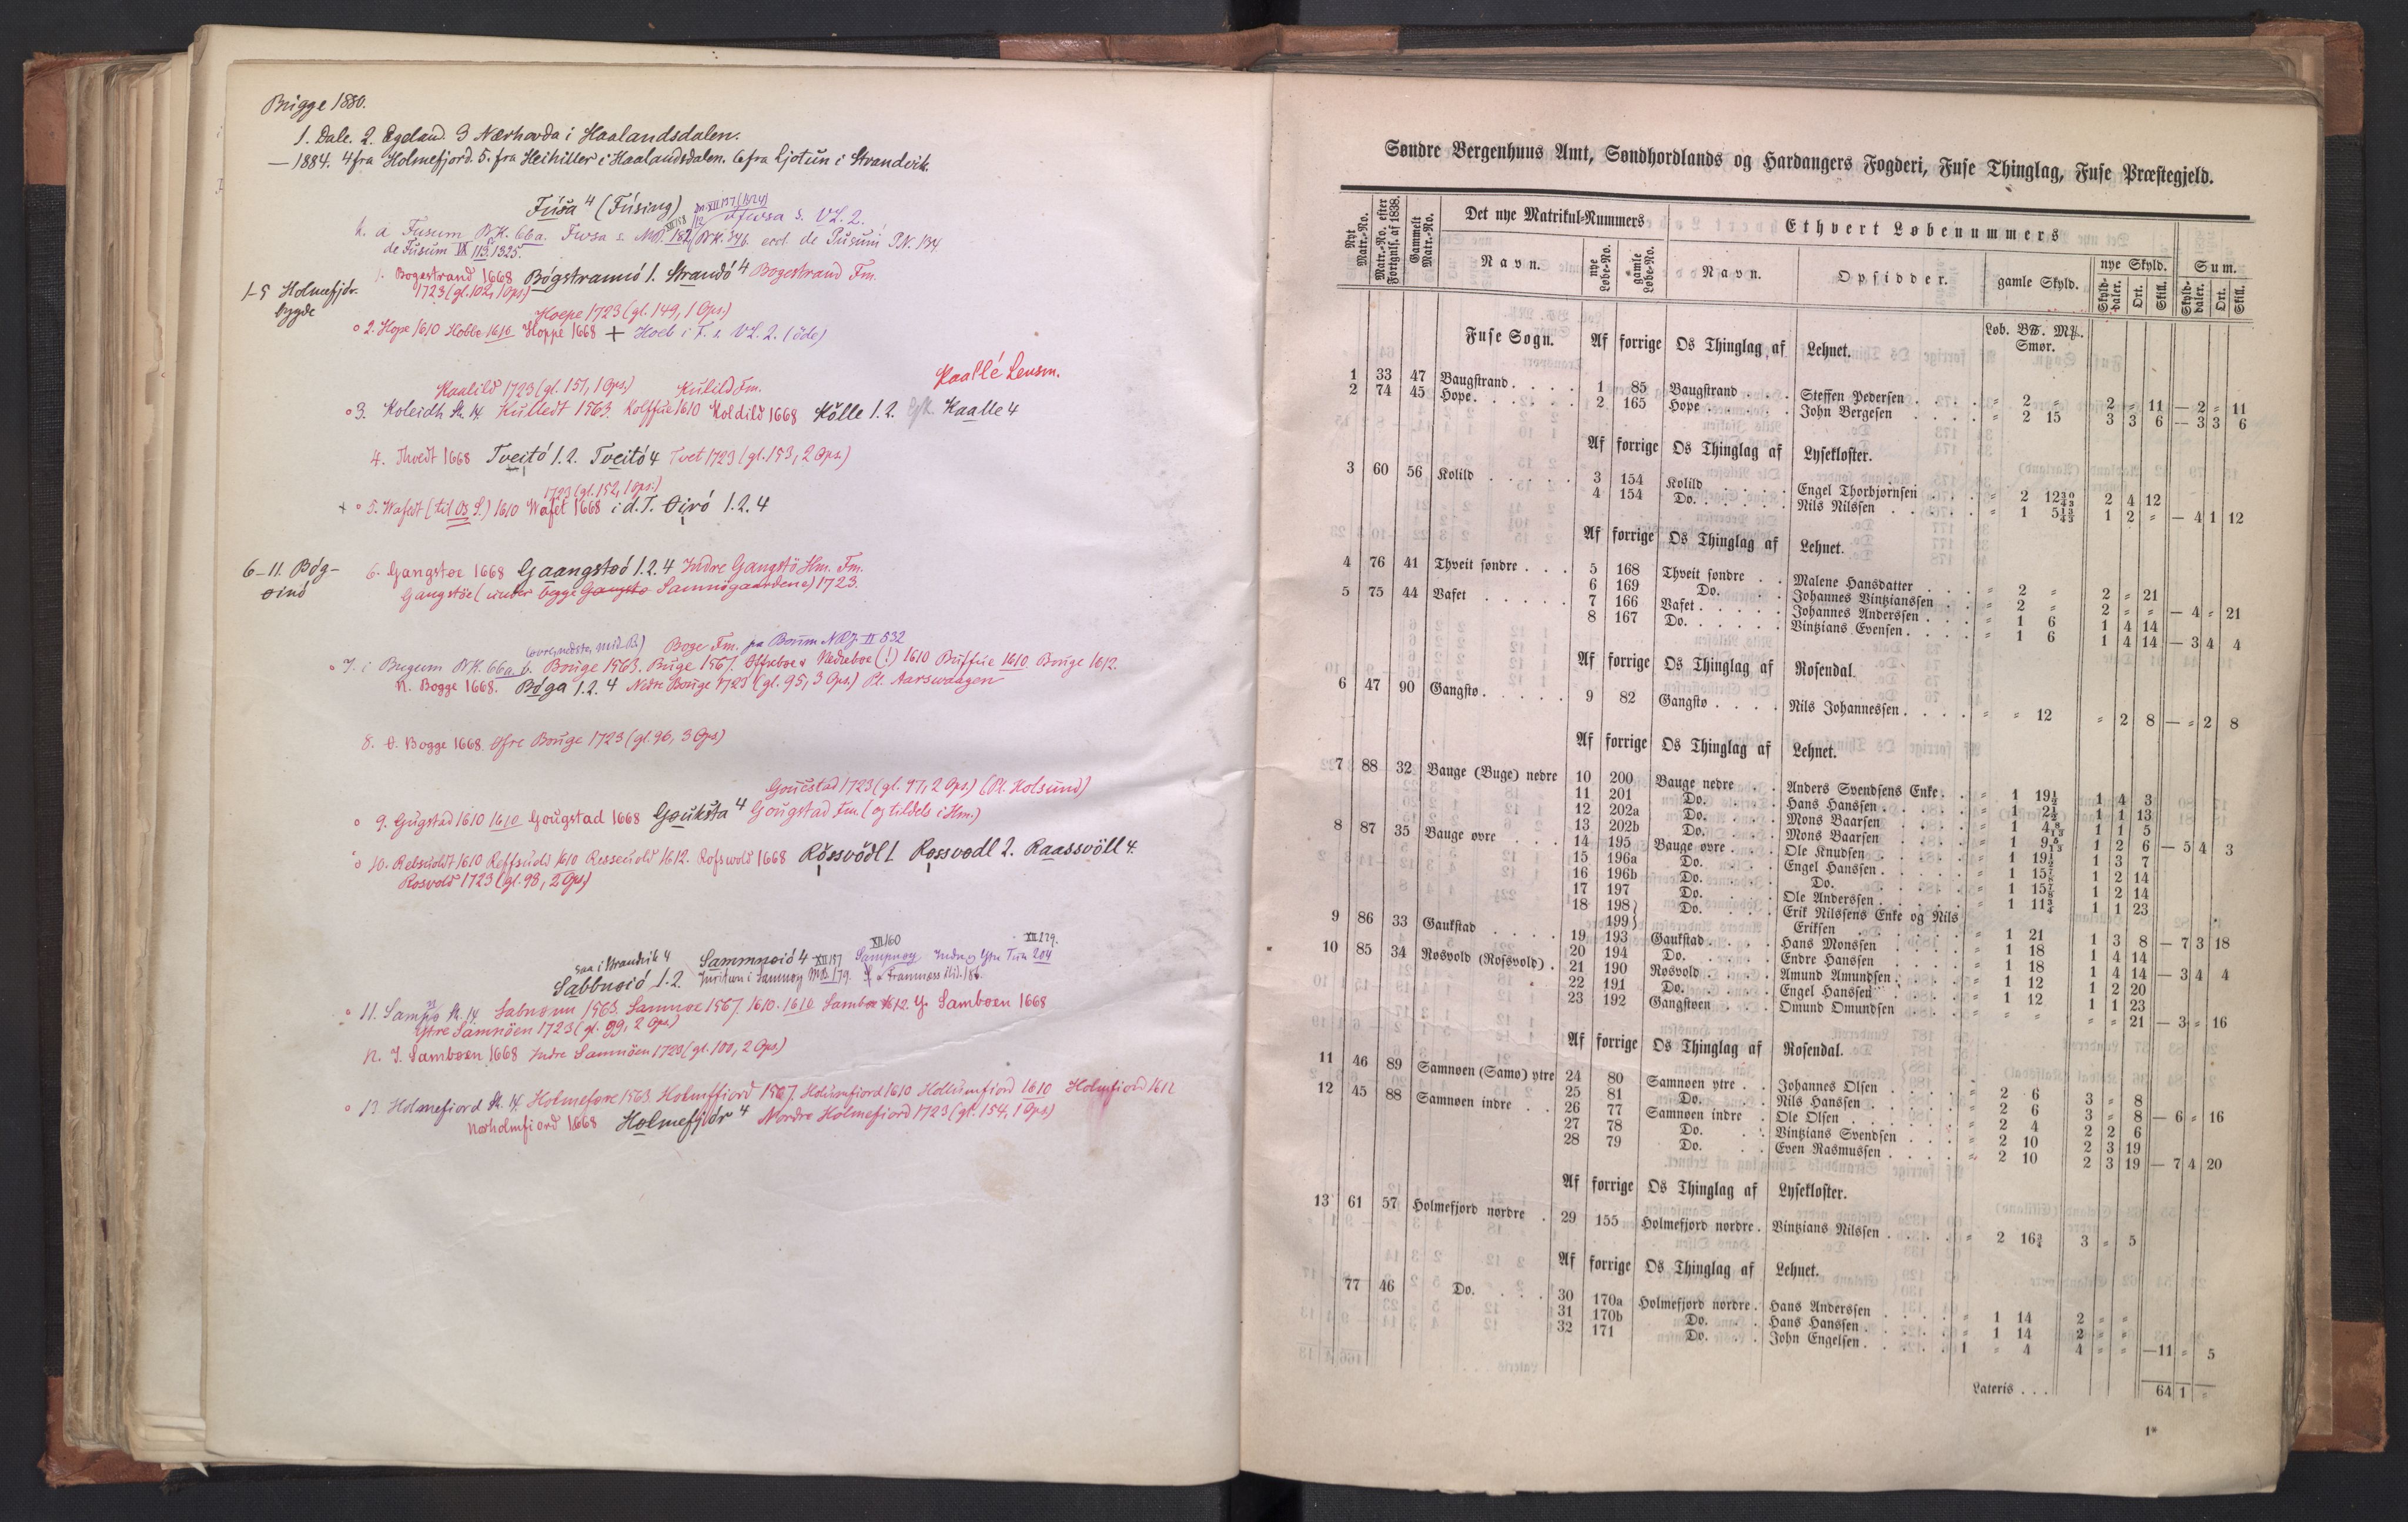 Brigge 1880.
1. Dale. 2. Egeland. 3 Nærhovda i Haalandsdalen.
— 1884. 4 fra Holmefjord. 5. fra Heihiller i Haalandsdalen. 6 fra Ljotun i Strandvik.
Fúsa 4 (Fúsing)
k. a Fusum BK. 66a. Fusa s. VL. 2. eccl. de Fusum PN. 134
de Fusum IX 113. 1325.
1-5 Holmefjdr. bygde
1. Bogestrand 1668 Bógstrannó 1. Strandó 4 Bogestrand Fm.
1723 (gl. 102, 1 Ops.)
Hoepe 1723 (gl. 149, 1 Ops.)
2. Hope 1610 Hobbe 1610 Hoppe 1668 + Hoeb i F. s. VL. 2. (öde)
Kaallé Lensm.
Kaalild 1723 (gl. 151, 1 Ops.) Kulild Fm.
3. Koleidh St. 14. Kulledt 1563. Kolffue 1610 Koldild 1668 Kölle 1. 2. Kaalle 4
4. Thvedt 1668 Tveitó 1. 2. Tveitó 4 Tvet 1723 (gl. 153, 2 Ops.)
1723 (gl. 152, 1 Ops.)
+ 5. Wafedt (til Os S.) 1610 Wafet 1668 i d. T. Oiró 1. 2. 4
6-11. Bógoinó
6. Gangstøe 1668 Gaangstoó 1. 2. 4 Indre Gangstö Hm. Fm.
Gangstöe (under begge Samnögaardene) 1723.
Boge Fm. paa Boum NRJ. II 532
7. i Bugum BK. 66a, b. Bouge 1563. Buge 1567. Offreboe & Nedreboe (!) 1610 Buffue 1610. Bouge 1612.
N. Bogge 1668. Bóga 1. 2. 4 Nedre Bouge 1723 (gl. 95, 3 Ops.) Pl. Aarswaagen
8. Ø. Bogge 1668. Øfre Bouge 1723 (gl. 96, 3 Ops.)
Gouestad 1723 (gl. 97, 2 Ops.) (Pl. Kolsund)
9. Gugstad 1610 1610 Gougstad 1668 Gouksta 4 Gougstad Fm. (og tildels i Hm.)
10. Rebsuoldt 1610 Reffsuold 1610 Resseuold 1612. Rofswold 1668 Rössvödl 1. Rossvodl 2. Raassvöll 4.
Rosvold 1723 (gl. 98, 2 Ops.)
saa i Strandvik 4 Sammnoió 4 XII 157 XII 160 Sampnoy Indre og Ytre Tun 204 XII 179.
Sabbnoió 1. 2. Juritun i Samnøy MB 179.
11. Sampø St. 14. Sabnønn 1563. Samnøe 1567. 1610. 1610 Sambøe 1612. Y. Samboen 1668
Ytre Samnöen 1723 (gl. 99, 2 Ops.)
12. I. Samboen 1668 Indre Samnöen 1723 (gl. 100, 2 Ops.)
13. Holmefiord St. 14. Holmeføre 1563 Holmffiord 1567. Holumfiord 1610 Hollumfiord 1610 Holmfiord 1612
Norholmfiord 1668 Holmefjdr 4 Nordre Holmefiord 1723 (gl. 154, 1 Ops)
Søndre Bergenhuus Amt, Søndhordlands og Hardangers Fogderi, Fuse Thinglag, Fuse Præstegjeld.
Nyt Matr.-No. | Matr.-No. efter Fortgnls. af 1838. | Gammelt Matr.-No. | Det nye Matrikul-Nummers | Ethvert Løbenummers
Navn. | nye Løbe-No. | gamle Løbe-No. | Navn. | Opsidder. | gamle Skyld. | nye Skyld. | Sum.
Skylddaler. | Ort. | Skill. | Skylddaler. | Ort. | Skill.
Løb. B℔. M℔. Smør.
Fuse Sogn. Af forrige Os Thinglag af Lehnet.
1 33 47 Baugstrand . . . . 1 85 Baugstrand . . . Steffen Pedersen . . . . " 2 " 2 " 11 — 2 " 11
2 74 45 Hope . . . . . . 2 165 Hope . . . . . John Bergesen . . . . " 2 15 3 3 6 — 3 3 6
Af forrige Os Thinglag af Lysekloster.
3 60 56 Kolild . . . . . 3 154 Kolild . . . . . Engel Thorbjørnsen . . . " 2 12 30/43 2 4 12
4 154 Do. . . . . . Nils Nilssen . . . . . " 1 5 13/43 1 2 " — 4 1 12
Af forrige Os Thinglag af Lehnet.
4 76 41 Thveit søndre . . . 5 168 Thveit søndre . . Malene Hansdatter . . . " 2 " 2 " 21
6 169 Do. . . . Johannes Vintzianssen . . " 2 " 2 " " — 4 " 21
5 75 44 Vafet . . . . . 7 166 Vafet . . . . . Johannes Anderssen . . . " 1 6 1 4 14
8 167 Do. . . . . . Vintzians Evensen . . . . " 1 6 1 4 14 — 3 4 4
Af forrige Os Thinglag af Rosendal.
6 47 90 Gangstø . . . . . 9 82 Gangstø . . . . Nils Johannessen . . . . " " 12 " 2 8 — " 2 8
Af forrige Os Thinglag af Lehnet.
7 88 32 Bauge (Buge) nedre 10 200 Bauge nedre . Anders Svendsens Enke . . " 1 19½ 1 4 3
11 201 Do. . . . Hans Hanssen . . . . " 1 2½ 1 1 13
12 202a Do. . . . Mons Baarsen . . . . " 1 4 8/13 1 1 5
13 202b Do. . . . Mons Baarsen . . . . " 1 9 5/13 1 2 6 — 5 4 3
8 87 35 Bauge øvre . . . 14 195 Bauge øvre . . . Ole Knudsen . . . . " 1 19½ 1 3 7
15 196a Do. . . . Engel Hanssen . . . . . " 1 15⅞ 1 2 14
16 196b Do. . . . Do. . . . . " 1 15⅞ 1 2 14
17 197 Do. . . . Ole Anderssen . . . . . " 1 11¾ 1 1 23
18 198 199 Do. . . . Erik Nilssens Enke og Nils Eriksen . . . . " 1 21 1 3 8 — 7 3 18
9 86 33 Gaukstad . . . . 19 193 Gaukstad . . . . Hans Monssen . . . . " 1 18 1 4 14
20 194 Do. . . . Endre Hanssen . . . . " 1 18 1 4 14 — 3 4 4
10 85 34 Rosvold (Rofsvold) . 21 190 Rosvold . . . . Amund Amundsen . . . . " 1 12 1 2 20
22 191 Do. . . . Engel Hanssen . . . . " 1 12 1 1 23
23 192 Gangstøen . . . Omund Omundsen . . . " " " " " 21 — 3 " 16
Af forrige Os Thinglag af Rosendal.
11 46 89 Samnøen (Samø) ytre 24 80 Samnøen ytre . . Johannes Olsen . . . . " 2 6 3 " 8
25 81 Do. . . . Nils Hanssen . . . . " 2 6 3 " 8 — 6 " 16
12 45 88 Samnøen indre . . 26 77 Samnøen indre . Ole Olsen . . . . . " 2 4 2 2 6
27 78 Do. . . . Vintzians Svendsen . . . " 2 10 2 3 19
28 79 Do. . . . Even Rasmussen . . . . " 2 10 2 3 19 — 7 4 20
Af forrige Os Thinglag af Lysekloster.
13 61 57 Holmefjord nordre . 29 155 Holmefjord nordre . Vintzians Nilssen . . . . " 2 16¾ 3 " 5
Af forrige Os Thinglag af Lehnet.
77 46 Do. . . . 30 170a Holmefjord nordre . Hans Anderssen . . . . " 1 14 2 " "
31 170b Do. . . . Hans Hanssen . . . . " 1 14 2 " "
32 171 Do. . . . John Engelsen . . . . 1 " 4 4 " " — 11 " 5
Lateris . . . 64 1 "
1*